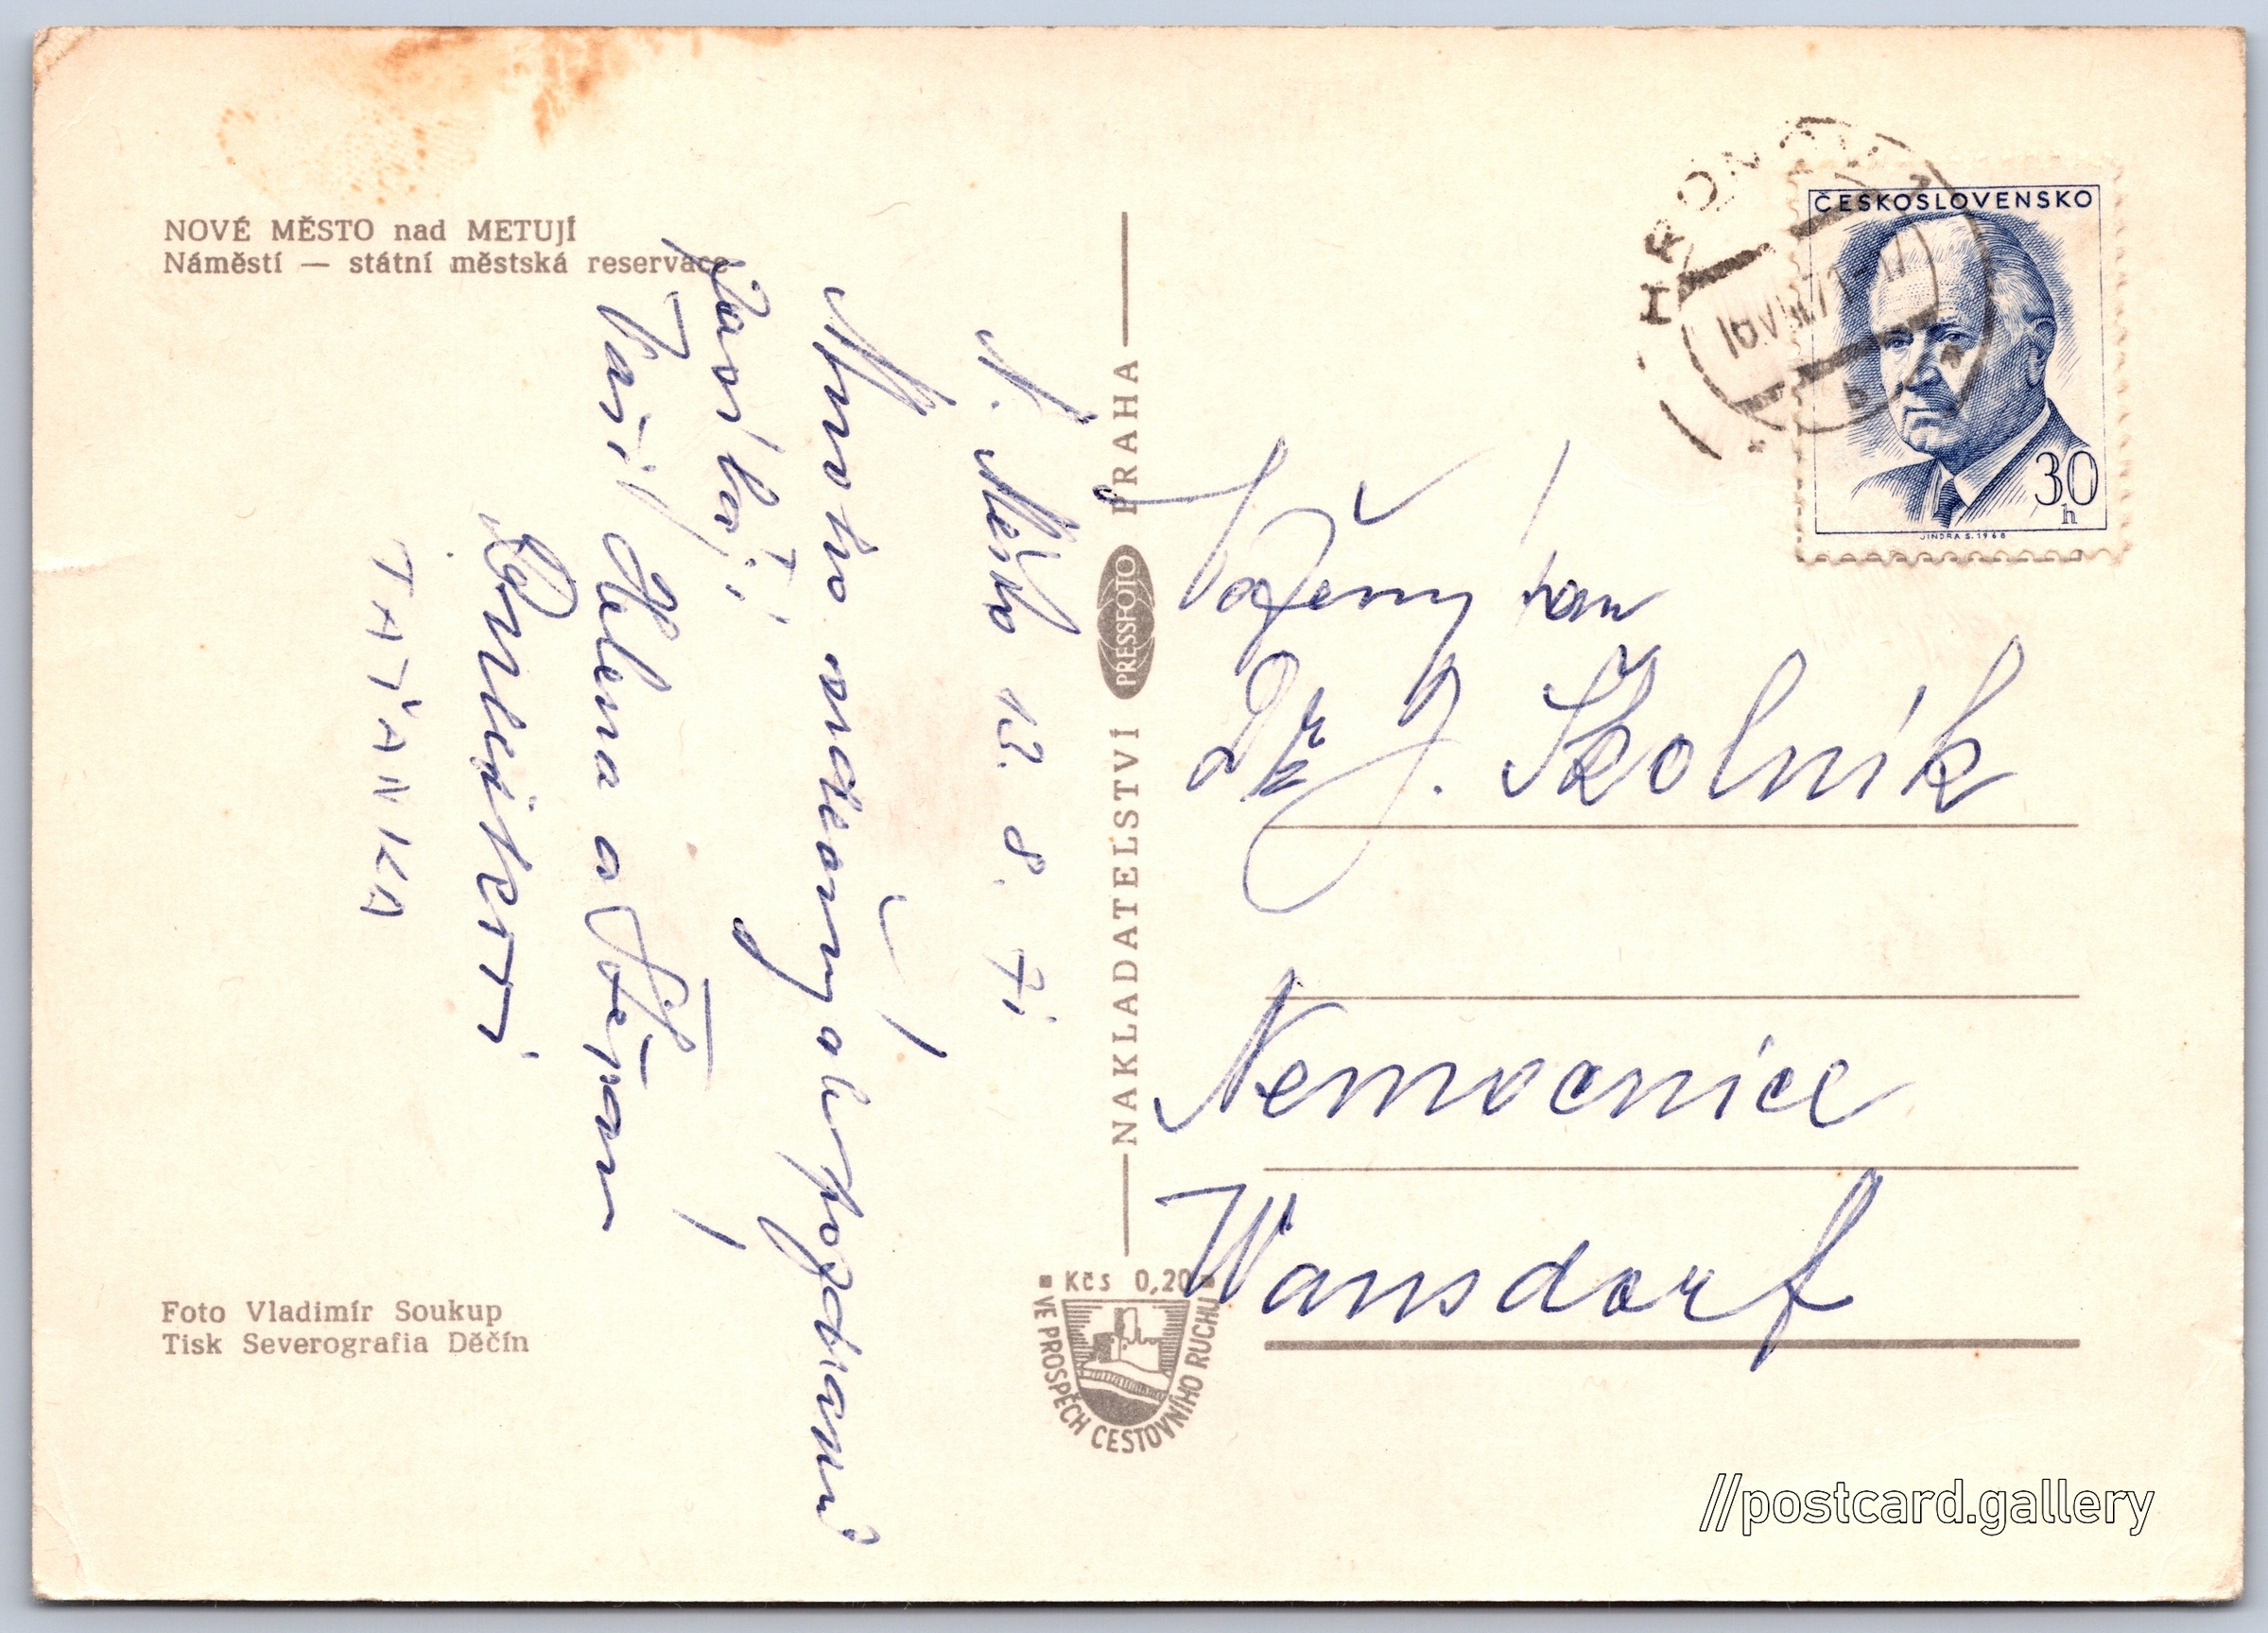 NOVÉ MĚSTO nad METUJÍ
Náměstí — státní městská reservace
N. Město 13. 8. 71
Mnoho srdečných pozdravů
posílají
Vaši Helena a Štěpán
TAŤANKA
Foto Vladimír Soukup
Tisk Severografia Děčín
NAKLADATELSTVÍ PRESSFOTO PRAHA
Kčs 0,20
VE PROSPĚCH CESTOVNÍHO RUCHU
HRONOV
ČESKOSLOVENSKO
30
h
JINDRA S. 1968
Vážený pan
J. Školník
Nemocnice
Warnsdorf
//postcard.gallery